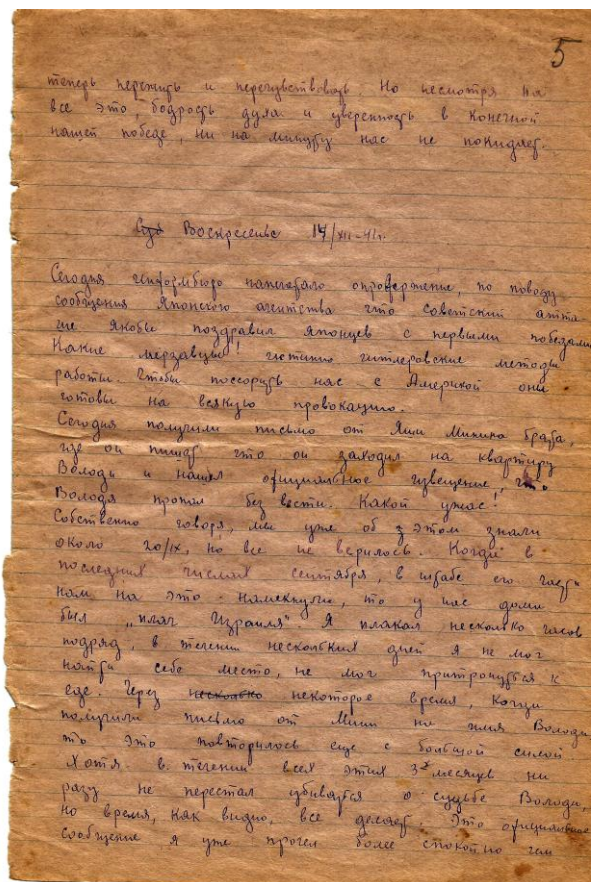 5
теперь пережить и перечувствовать. Но несмотря на
все это, бодрость духа и уверенность в конечной
нашей победе, ни на минуту нас не покидает.
Воскресенье 14/XII-41г.
Сегодня Информбюро напечатало опровержение, по поводу
сообщения Японского агентства что советский атта-
ше якобы поздравил японцев с первыми победами
Какие мерзавцы! истинно гитлеровские методы
работы. Чтобы поссорить нас с Америкой они
готовы на всякую провокацию.
Сегодня получили письмо от Яши Минина брата,
где он пишет что он заходил на квартиру
Володи и нашел официальное извещение, что
Володя пропал без вести. Какой ужас!
Собственно говоря, мы уже об этом знали
около 20/IX, но все не верилось. Когда в
последних числах сентября, в штабе его части
нам на это намекнули, то у нас дома
был "плач Израиля". Я плакал несколько часов
подряд, в течении нескольких дней я не мог
найти себе место, не мог притронуться к
еде. Через несколько некоторое время, когда
получили письмо от Миши на имя Володи
то это повторилось еще с большой силой.
Хотя в течении всех этих 3х месяцев ни
разу не перестал убиваться о судьбе Володи,
но время, как видно, все делает. Это официальное
сообщение я уже прочел более спокойно чем